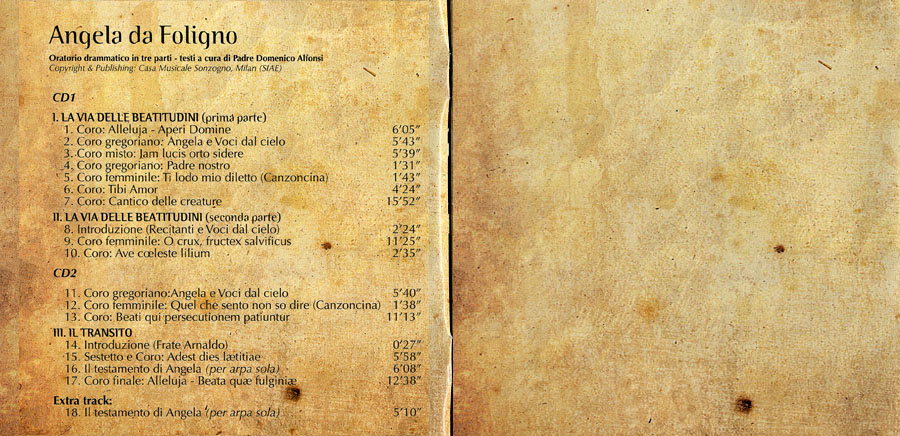 Angela da Foligno
Oratorio drammatico in tre parti - testi a cura di Padre Domenico Alfonsi
Copyright & Publishing: Casa Musicale Sonzogno, Milan (SIAE)
CD1
I. LA VIA DELLE BEATITUDINI (prima parte)
1. Coro: Alleluja - Aperi Domine 6’05”
2. Coro gregoriano: Angela e Voci dal cielo 5’43”
3. Coro misto: Jam lucis orto sidere 5’39”
4. Coro gregoriano: Padre nostro 1’31”
5. Coro femminile: Ti lodo mio diletto (Canzoncina) 1’43”
6. Coro: Tibi Amor 4’24”
7. Coro: Cantico delle creature 15’52”
II. LA VIA DELLE BEATITUDINI (seconda parte)
8. Introduzione (Recitanti e Voci dal cielo) 2’24”
9. Coro femminile: O crux, fructex salvificus 11’25”
10. Coro: Ave cœleste lilium 2’35”
CD2
11. Coro gregoriano:Angela e Voci dal cielo 5’40”
12. Coro femminile: Quel che sento non so dire (Canzoncina) 1’38”
13. Coro: Beati qui persecutionem patiuntur 11’13”
III. IL TRANSITO
14. Introduzione (Frate Arnaldo) 0’27”
15. Sestetto e Coro: Adest dies lætitiae 5’58”
16. Il testamento di Angela (per arpa sola) 6’08”
17. Coro finale: Alleluja - Beata quæ fulginiæ 12’38”
Extra track:
18. Il testamento di Angela (per arpa sola) 5’10”